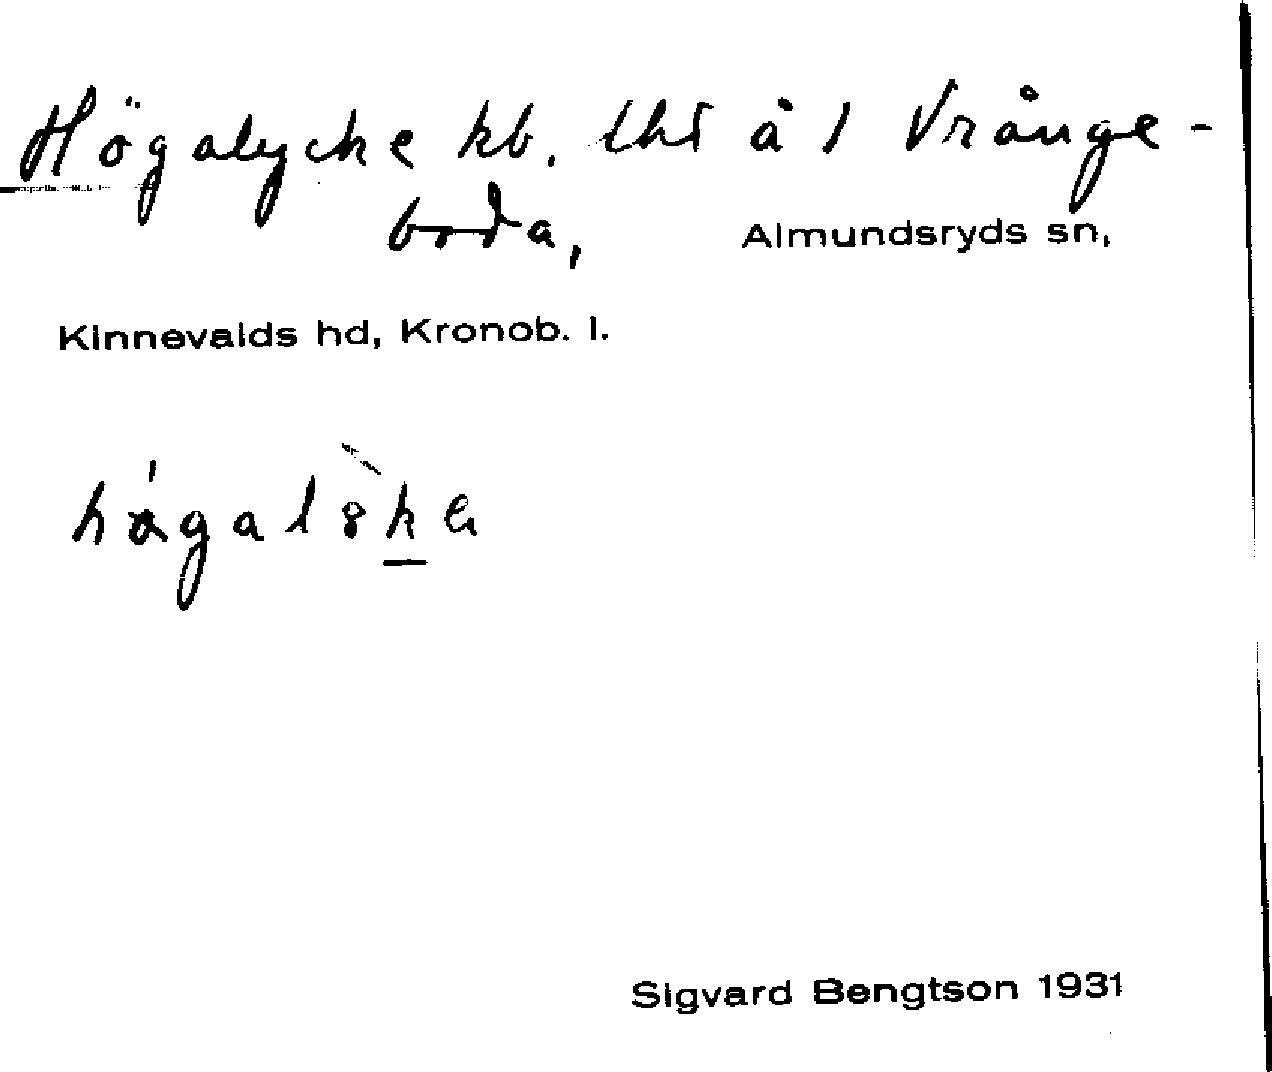 Högalycke kb. lht å 1 Vrånge-
boda, Almundsryds sn,
Kinnevalds hd, Kronob. l.
Sigvard Bengtson 1931